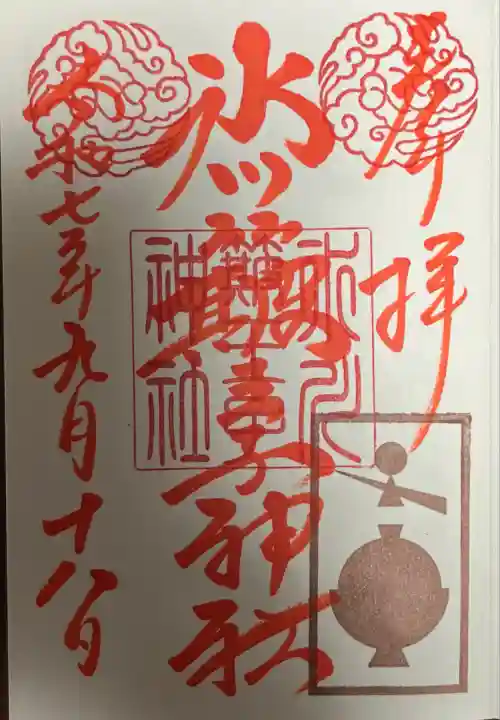 奉拝
氷川神社
令和七年九月十八日
氷川
神社